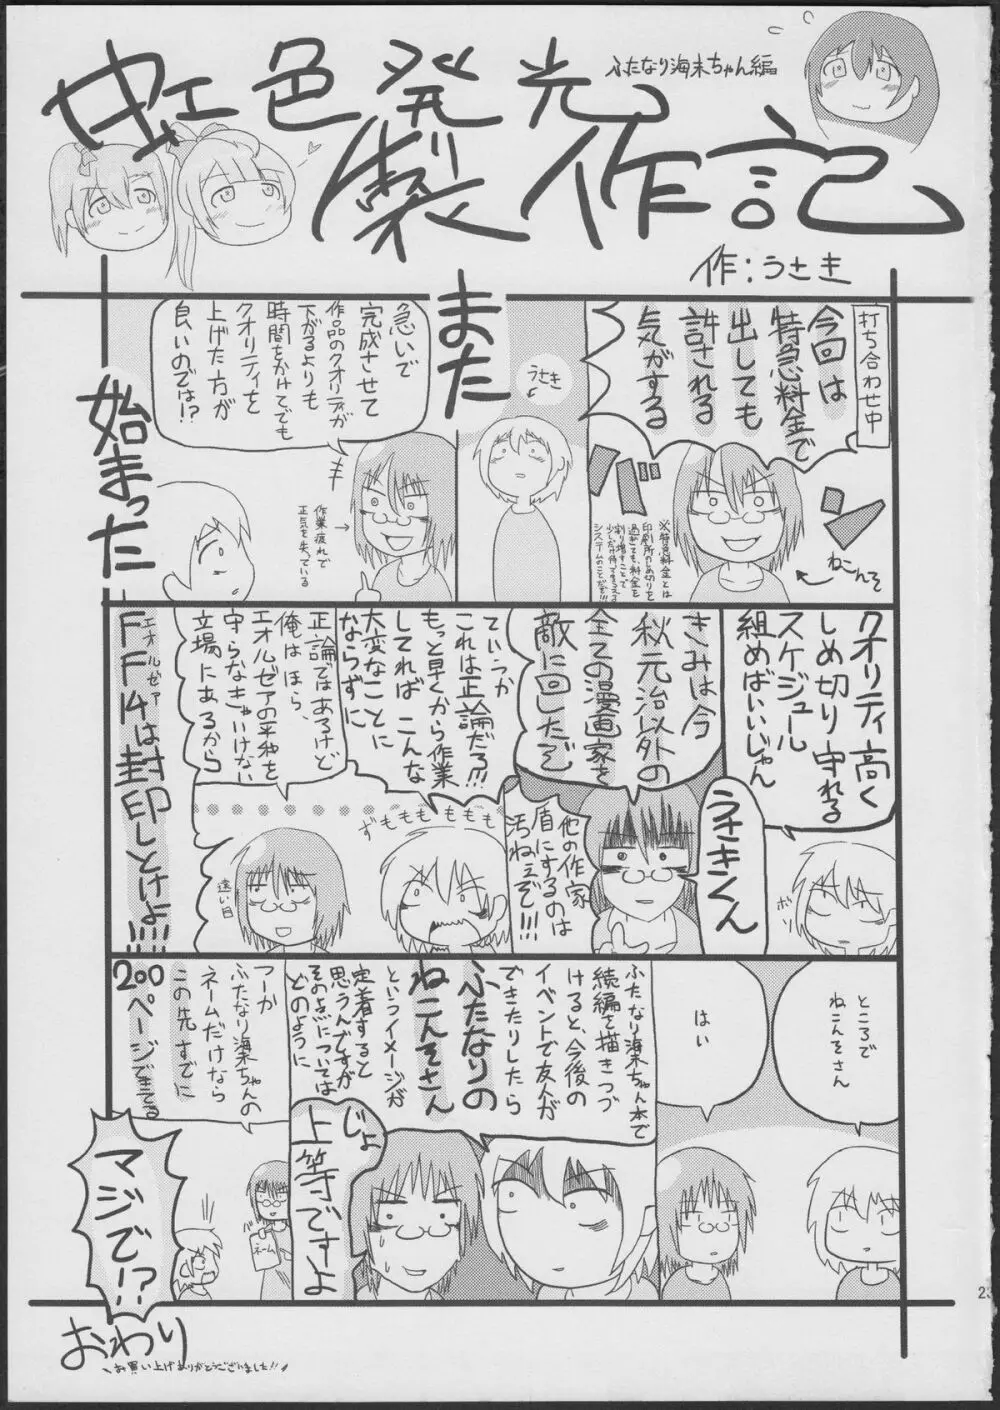 虹色発光。
製作記
ふたなり海未ちゃん編
作：うさき
打ち合わせ中
今回は
特急料金で
出しても
許される
気がする
バン
ねこんそ
※特急料金とは
印刷所のしめ切りを
過ぎても、料金を
割り増すことで
少しだけ待ってもらえる
システムのことだぞ!!!
うさき
また
急いで
完成させて
作品のクオリティが
下がるよりも
時間をかけてでも
クオリティを
上げた方が
良いのでは!?
作業疲れで
正気を失っている
始まった
クオリティ高く
しめ切り守れる
スケジュール
組めばいいじゃん
ボソ
うさきくん
きみは今
秋元治以外の
全ての漫画家を
敵に回したぞ
他の作家
盾にするのは
汚ねぇぞ!!!
ていうか
これは正論だろ!!!
もっと早くから作業
してれば こんな
大変なことに
ならずに
ずもももももも
正論ではあるけど
俺は ほら、
エオルゼアの平和を
守らなきゃいけない
立場にあるから
遠い目
エオルゼア
FF14は封印しとけよ!!!!
ところで
ねこんそさん
はい
ふたなり海未ちゃん本で
続編を描きつづ
けると、今後の
イベントで友人が
できたりしたら
ふたなりの
ねこんそさん
というイメージが
定着すると
思うんですが
そのよﾞについては
どのように
じょ
上等ですよ
つーか
ふたなり海未ちゃんの
ネームだけなら
この先すでに
200ページできてる
ネーム
マジで!?
おわり
お買い上げありがとうございました!!